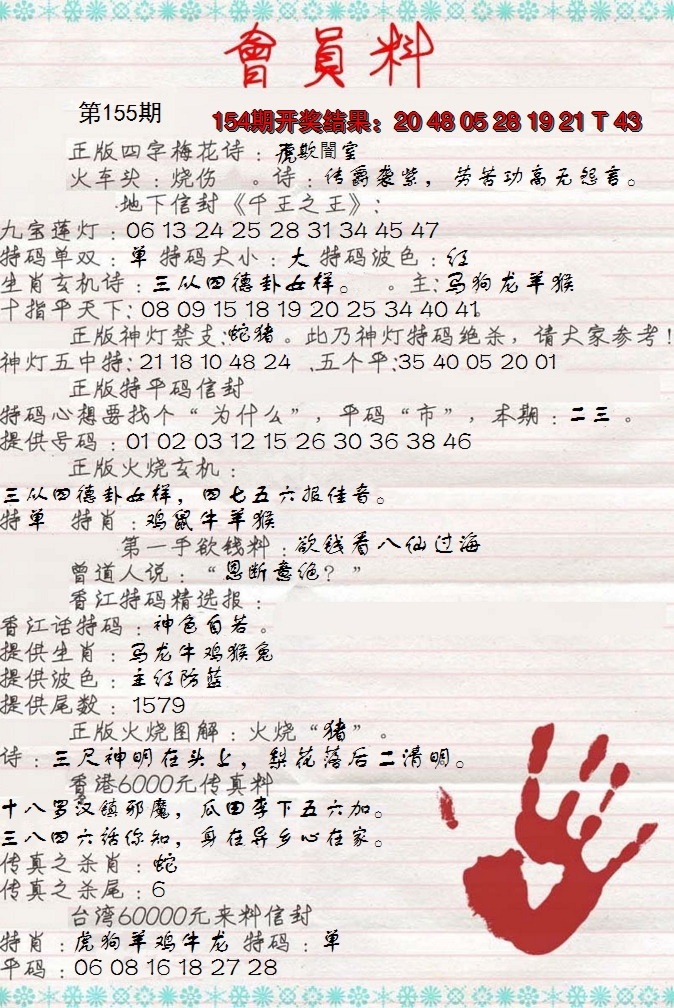 會員料
第155期
154期开奖结果：20 48 05 28 19 21 T 43
正版四字梅花诗：虎欺闇室
火车头：烧伤 。诗：传爵袭紫，劳苦功高无怨言。
地下信封《千王之王》:
九宝莲灯：06 13 24 25 28 31 34 45 47
特码单双：单 特码大小：大 特码波色：红
生肖玄机诗：三从四德卦女样。 。主:马狗龙羊猴
十指平天下: 08 09 15 18 19 20 25 34 40 41
正版神灯禁支:蛇猪。此乃神灯特码绝杀，请大家参考!
神灯五中特:21 18 10 48 24 .五个平:35 40 05 20 01
正版特平码信封
特码心想要找个“为什么”，平码“市”，本期：二三 。
提供号码：01 02 03 12 15 26 30 36 38 46
正版火烧玄机：
三从四德卦女样，四七五六报佳音。
特单 特肖：鸡鼠牛羊猴
第一手欲钱料：欲钱看八仙过海
曾道人说：“恩断意绝？”
香江特码精选报：
香江话特码：神色自若。
提供生肖：马龙牛鸡猴兔
提供波色：主红防蓝
提供尾数：1579
正版火烧图解：火烧“猪”。
诗：三尺神明在头上，梨花落后二清明。
香港6000元传真料
十八罗汉镇邪魔，瓜田李下五六加。
三八四六话你知，身在异乡心在家。
传真之杀肖：蛇
传真之杀尾：6
台湾60000元来料信封
特肖：虎狗羊鸡牛龙 特码：单
平码：06 08 16 18 27 28